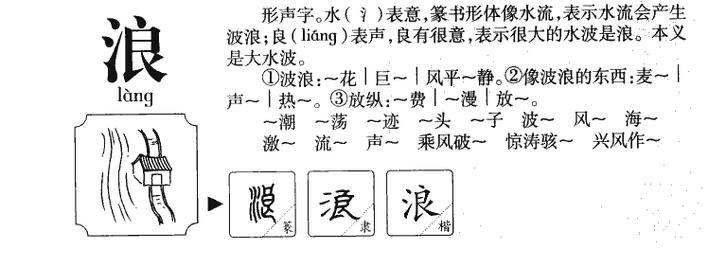 浪
làng
形声字。水(氵)表意,篆书形体像水流,表示水流会产生
波浪;良(liáng)表声,良有很意,表示很大的水波是浪。本义
是大水波。
①波浪:~花|巨~|风平~静。②像波浪的东西:麦~|
声~|热~。③放纵:~费|~漫|放~。
~潮 ~荡 ~迹 ~头 ~子 波~ 风~ 海~
激~ 流~ 声~ 乘风破~ 惊涛骇~ 兴风作~
浪 篆 浪 隶 浪 楷